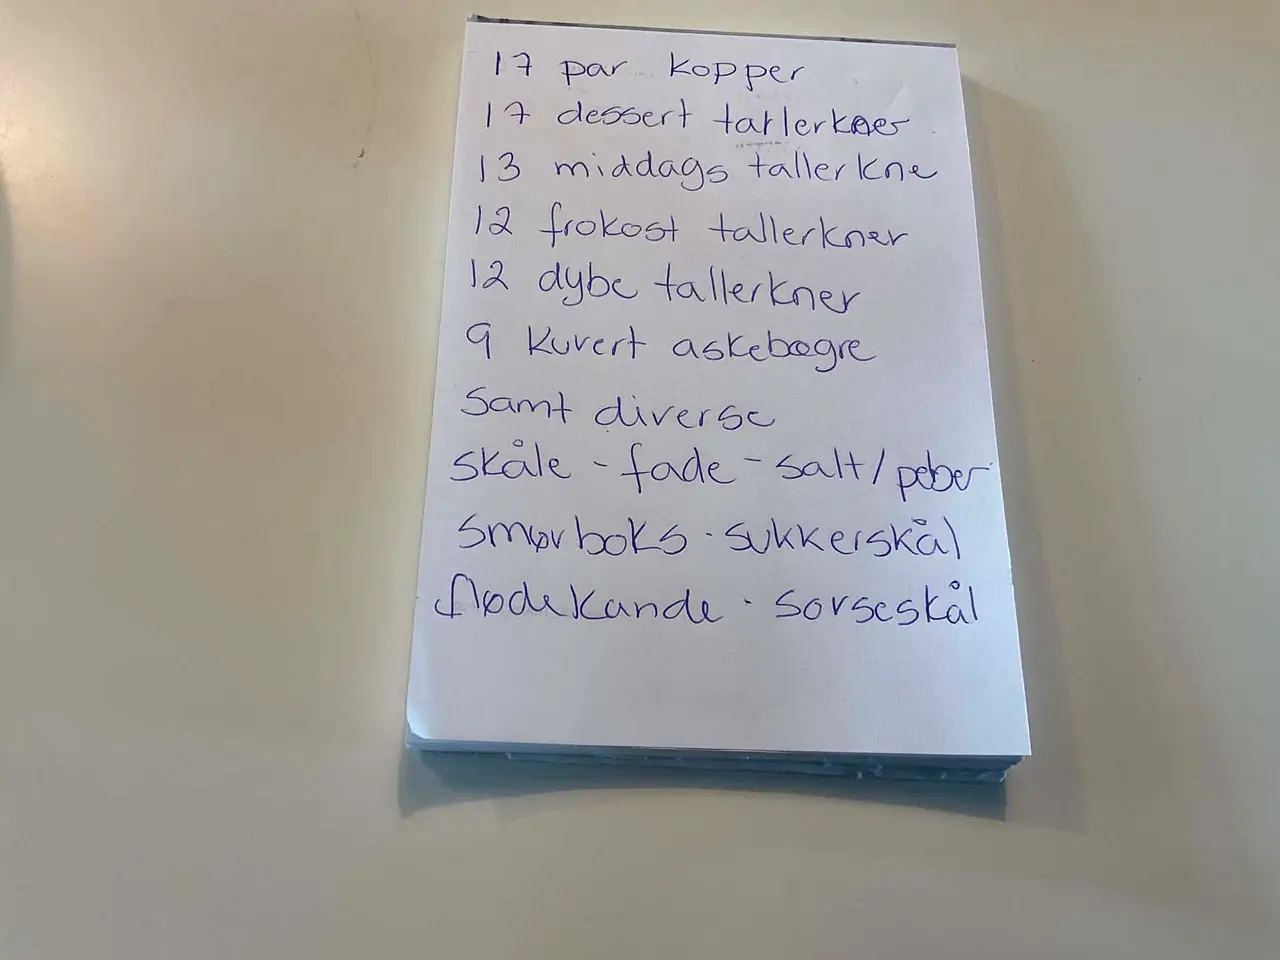 17 par kopper
17 dessert tallerkner
13 middags tallerkne
12 frokost tallerkner
12 dybe tallerkner
9 kuvert askebægre
samt diverse
skåle - fade - salt/peber
smørboks - sukkerskål
flødekande - sovseskål